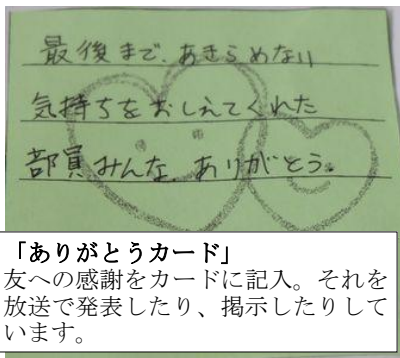 最後まで、あきらめない
気持ちをおしえてくれた
部員みんな、ありがとう。
「ありがとうカード」
友への感謝をカードに記入。それを
放送で発表したり、掲示したりして
います。